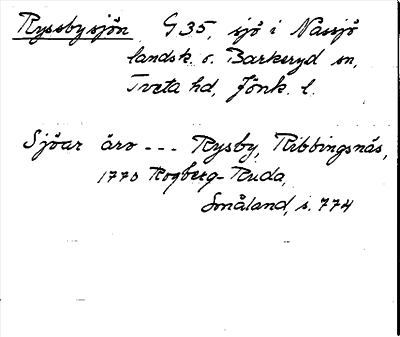 Ryssbysjön G 35, sjö i Nässjö
landsk. o. Barkeryd sn,
Tveta hd, Jönk. l.
Sjöar äro --- Rysby, Ribbingsnäs,
1770 Rogberg-Ruda,
Småland, s. 774